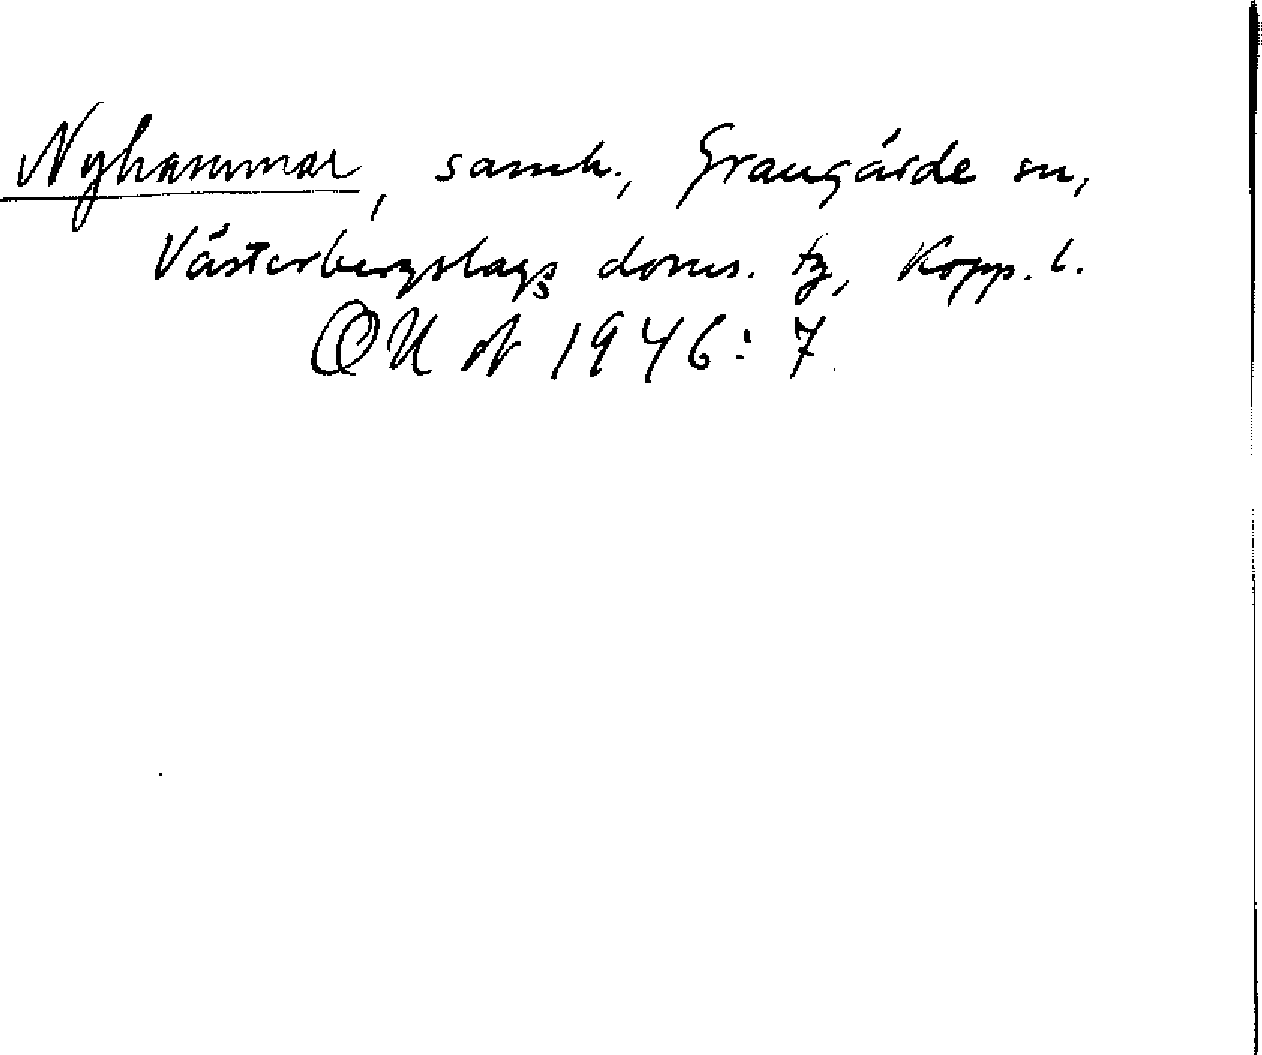 Nyhammar, samh., Grangärde sn,
Västerbergslags doms. tg, Kopp. l.
1946: 7